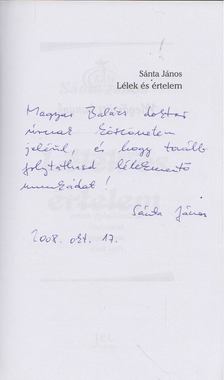 Sánta János
Lélek és értelem
Magyar Balázs doktor
úrnak köszönetem
jeléül, és hogy tovább
folytathasd lélekmentő
munkádat!
Sánta János
2008. okt. 17.